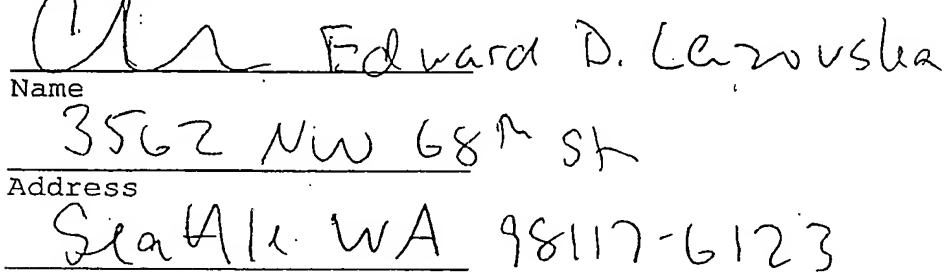 Edward D. Lazovska
Name
3562 NW 68th St
Address
Seattle WA 98117-6123